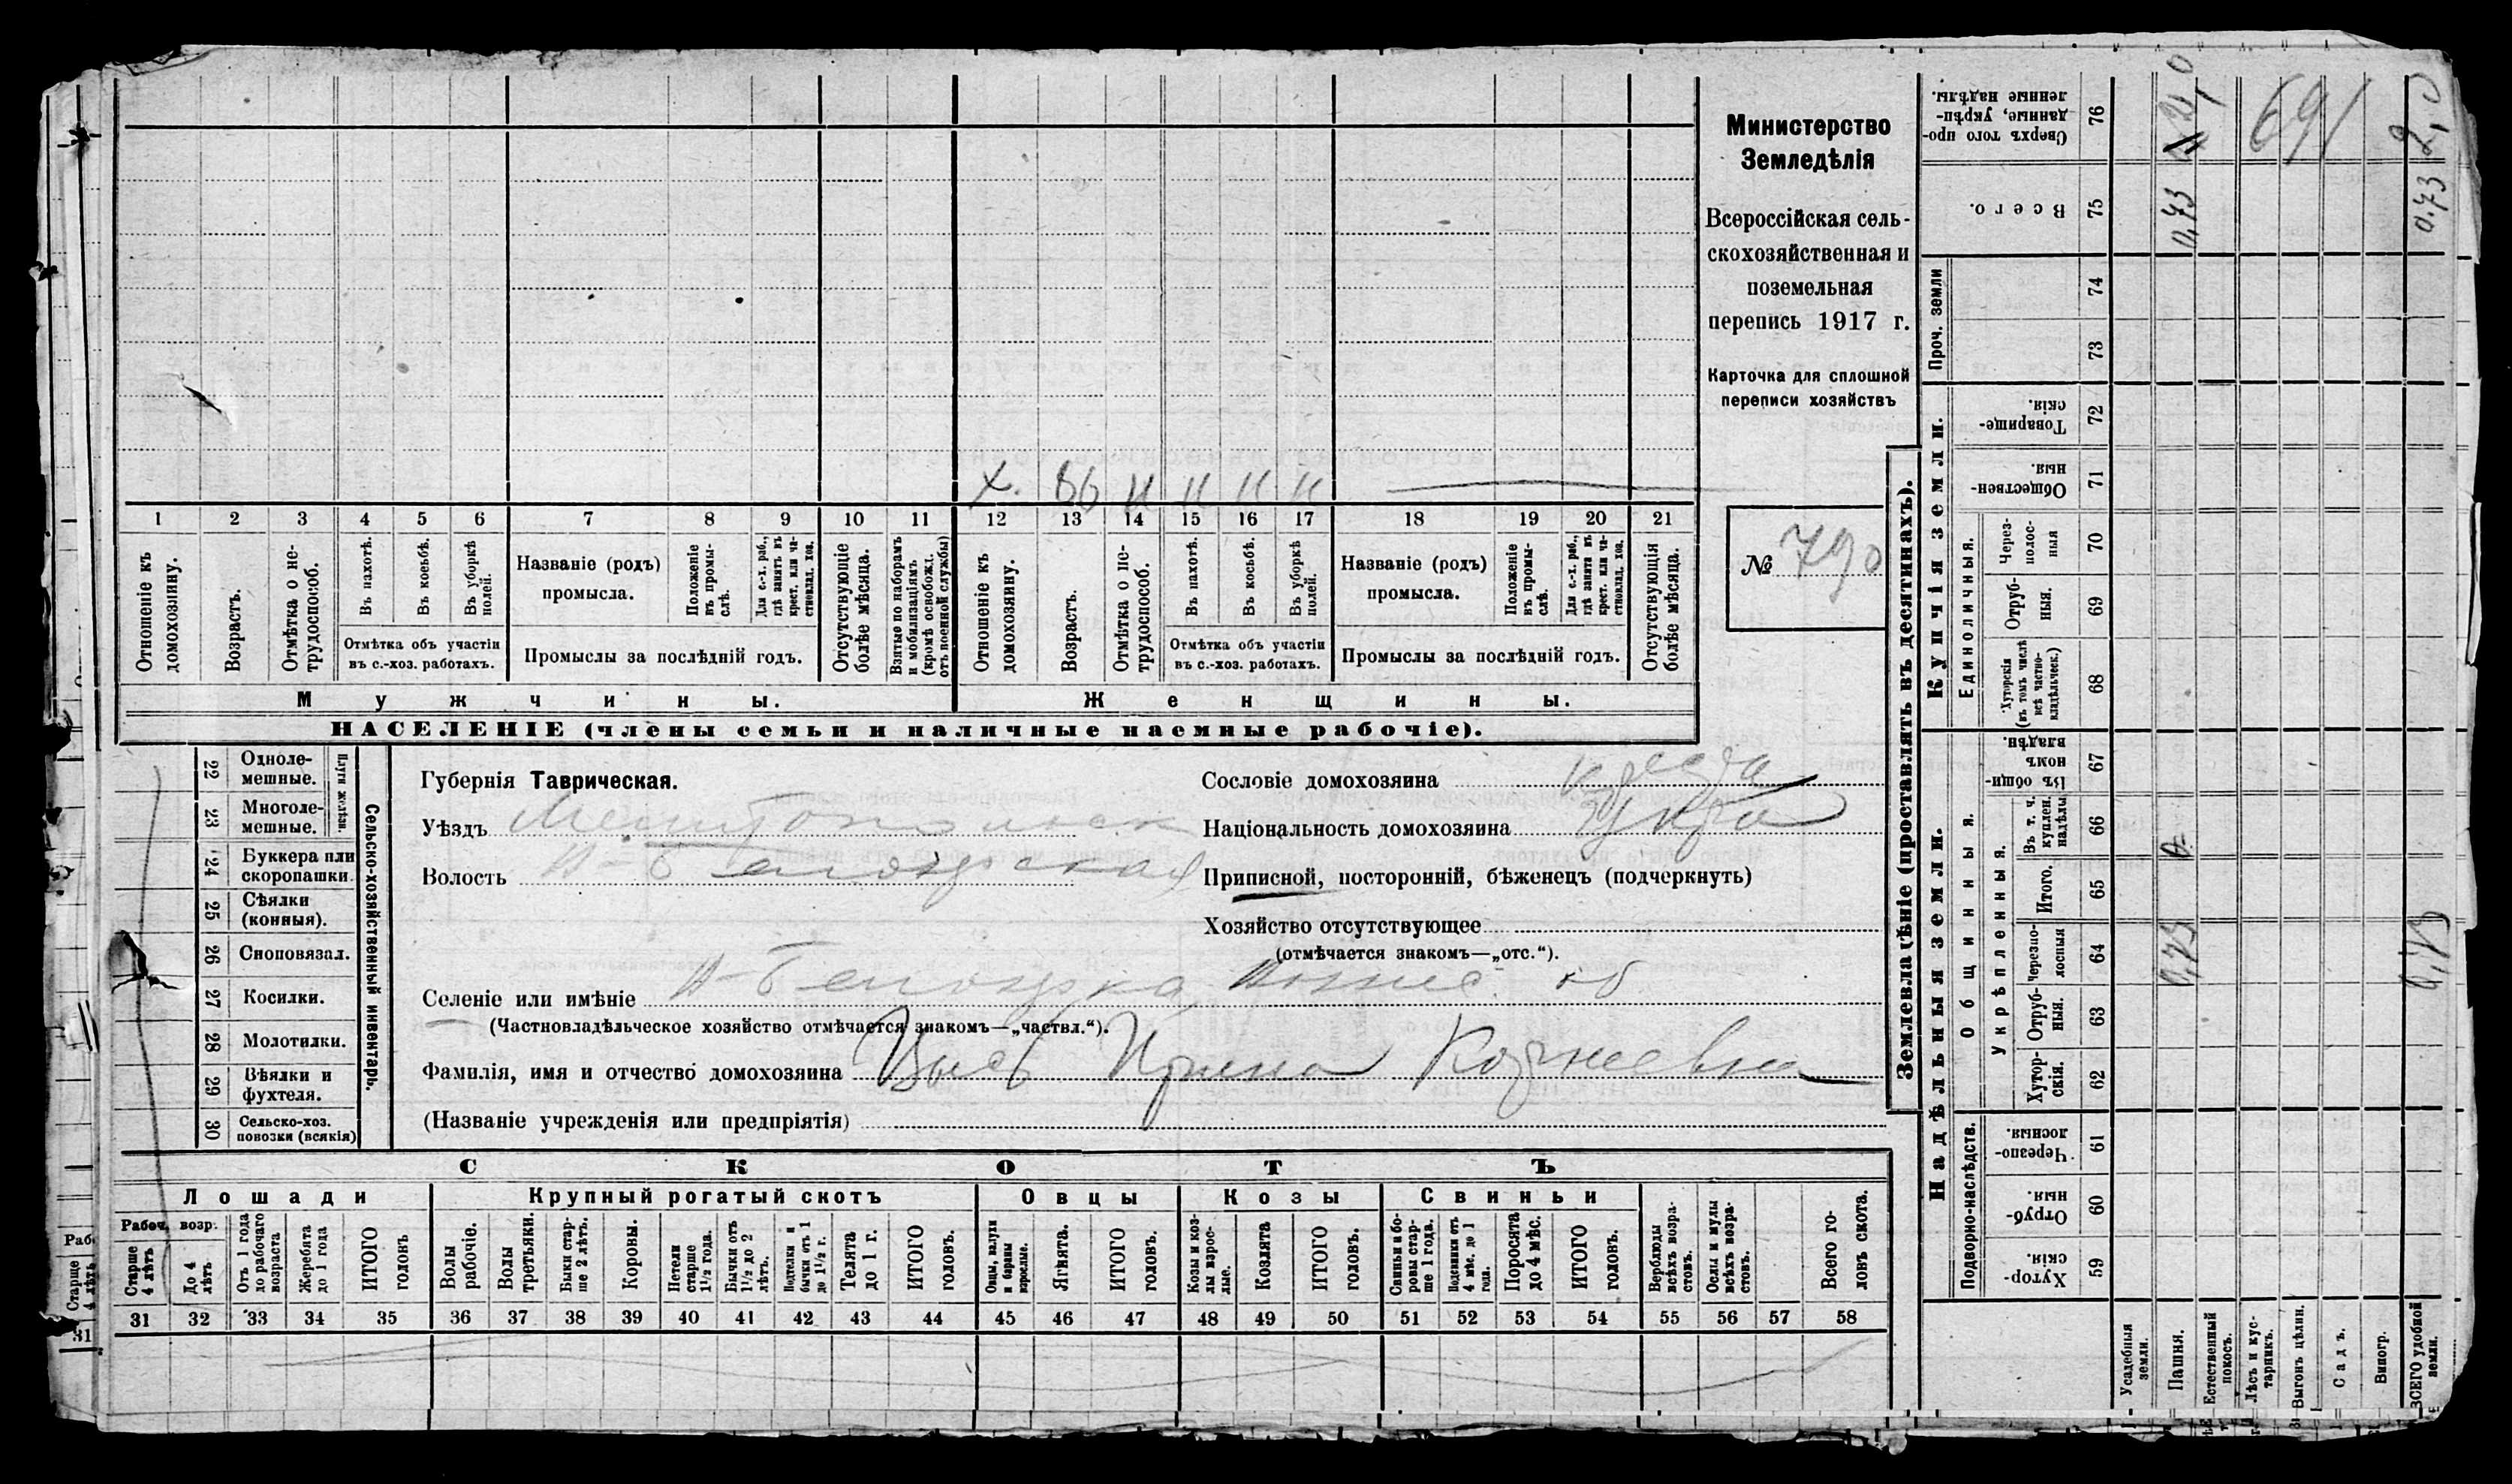 Министерство
Земледѣлія
Всероссійская сель-
скохозяйственная и
поземельная
перепись 1917 г.
Карточка для сплошной
переписи хозяйствъ
№ 790
Х. 66 н н н н
1 2 3 4 5 6 7 8 9 10 11 12 13 14 15 16 17 18 19 20 21
Отношеніе къ домохозяину.
Возрастъ.
Отмѣтка о не-трудоспособ.
Въ пахотѣ.
Въ косьбѣ.
Въ уборкѣ полей.
Отмѣтка объ участіи
въ с.-хоз. работахъ.
Названіе (родъ)
промысла.
Положеніе въ промы-слѣ.
Для с.-х. раб., гдѣ занятъ въ крест. или ча-стновлад. хоз.
Промыслы за послѣдній годъ.
Отсутствующіе болѣе мѣсяца.
Взятые по наборамъ и мобилизаціямъ (кромѣ освобожд. отъ военной службы)
Отношеніе къ домохозяину.
Возрастъ.
Отмѣтка о не-трудоспособ.
Въ пахотѣ.
Въ косьбѣ.
Въ уборкѣ полей.
Отмѣтка объ участіи
въ с.-хоз. работахъ.
Названіе (родъ)
промысла.
Положеніе въ промы-слѣ.
Для с.-х. раб., гдѣ занята въ крест. или ча-стновлад. хоз.
Промыслы за послѣдній годъ.
Отсутствующія болѣе мѣсяца.
Мужчины.
Женщины.
НАСЕЛЕНІЕ (члены семьи и наличные наемные рабочіе).
22 Одноле-мешные.
23 Многоле-мешные.
Плуги желѣзн.
24 Буккера или скоропашки
25 Сѣялки (конныя).
26 Сноповязал.
27 Косилки.
28 Молотилки.
29 Вѣялки и фухтеля.
30 Сельско-хоз. повозки (всякія)
Сельско-хозяйственный инвентарь.
Губернія Таврическая.
Уѣздъ Мелитопольск
Волость Н-Белозерская
Сословіе домохозяина
Національность домохозяина
Приписной, посторонній, бѣженецъ (подчеркнуть)
Хозяйство отсутствующее
(отмѣчается знакомъ—„отс.“).
Селеніе или имѣніе Н-Белозерка
(Частновладѣльческое хозяйство отмѣчается знакомъ—„частвл.“).
Фамилія, имя и отчество домохозяина Цысь Ирина Корнеевна
(Названіе учрежденія или предпріятія)
СКОТЪ
Лошади
Крупный рогатый скотъ
Овцы
Козы
Свиньи
Рабоч. возр.
Старше 4 лѣтъ
До 4 лѣтъ.
Отъ 1 года до рабочаго возраста
Жеребята до 1 года
ИТОГО головъ
Волы рабочіе.
Волы третьяки.
Быки стар-ше 2 лѣтъ.
Коровы.
Нетели старше 1½ года.
Бычки отъ 1½ до 2 лѣтъ.
Подтелки и бычки отъ 1 до 1½ г.
Телята до 1 г.
ИТОГО головъ.
Овцы, валухи и бараны взрослые.
Ягнята.
ИТОГО головъ.
Козы и коз-лы взрос-лые.
Козлята
ИТОГО головъ.
Свиньи и бо-ровы стар-ше 1 года.
Подсвинки отъ 4 мѣс. до 1 года.
Поросята до 4 мѣс.
ИТОГО головъ.
Верблюды всѣхъ возра-стовъ.
Ослы и мулы всѣхъ возра-стовъ.
Всего го-ловъ скота.
31 32 33 34 35 36 37 38 39 40 41 42 43 44 45 46 47 48 49 50 51 52 53 54 55 56 57 58
Землевладѣніе (проставлять въ десятинахъ).
Надѣльныя земли.
Купчія земли.
Проч. земли
Подворно-наслѣдств.
Общинныя.
Укрѣпленныя.
Единоличныя.
Хутор-скія. 59
Отруб-ныя. 60
Черезпо-лосныя. 61
Хутор-скія. 62
Отруб-ныя. 63
Черезпо-лосныя 64
Итого. 65
Въ т. ч. куплен. надѣлы 66
Въ общин-номъ владѣн. 67
Хуторскія (въ томъ числѣ всѣ частно-владѣльческ.) 68
Отруб-ныя. 69
Черезполос-ныя 70
Обществен-ныя. 71
Товарище-скія. 72
73
74
Всего. 75
Сверхъ того про-данные, укрѣп-ленные надѣлы. 76
Усадебныя земли.
Пашня.
Естественный покосъ.
Лѣсъ и кус-тарникъ.
Выгонъ цѣлин.
Садъ.
Виногр.
ВСЕГО удобной земли.
0,73
0,73
2,0
691